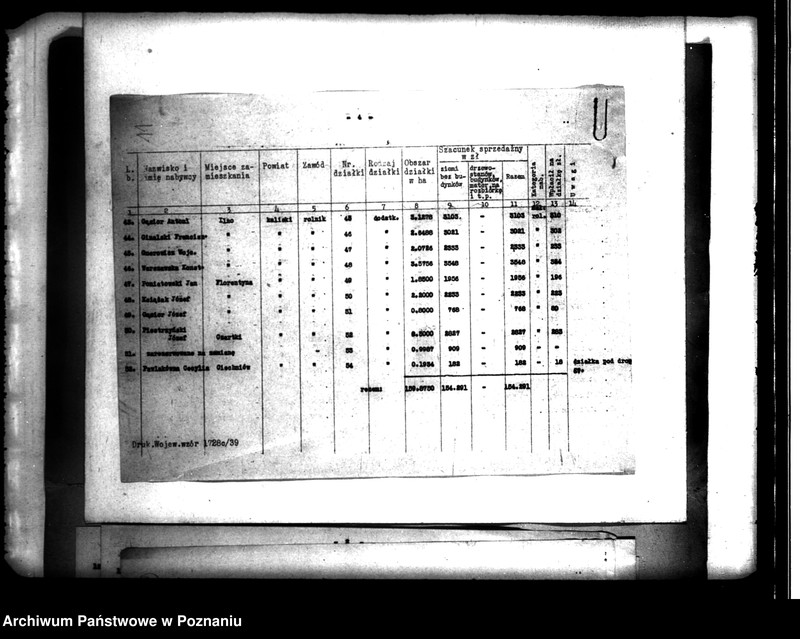 - 4 -
L.b. Nazwisko i imię nabywcy Miejsce zamieszkania Powiat Zawód Nr. działki Rodzaj działki Obszar działki w ha Szacunek sprzedażny w zł ziemi bez budynków drzewostanów, budynków, mater. na rozbiórkę i t.p. Razem Kategoria nab. Wpłacka na działkę zł. Uwagi
1 2 3 4 5 6 7 8 9 10 11 12 13 14
43. Gąsior Antoni kaliski rolnik 45 dodatk. 3103 - 3103 rol. 310
44. " " " 46 " 3021 - 3021 " 302
45. " " " 47 " 2.0726 2333 - 2333 " 233
46. " " " 48 " 3.5756 3548 - 3548 " 354
47. Poniatowski Jan Florentyna " " 49 " 1.8500 1956 - 1956 " 196
48. Książak Józef " " " 50 " 2.2000 2233 - 2233 " 223
49. Gąsior Józef " " " 51 " 0.8000 768 - 768 " 80
50. Piestrzyński Józef Czartki " " 52 " 2827 - 2827 " 283
51. zarezerwowane na zamianę - 53 " 0.9967 909 - 909 - -
52. Pawlakówna Cecylia " " 54 " 0.1934 182 - 182 - 18 działka pod drogę
razem: 154.291 - 154.291
Druk.Wojew.wzór 1728c/39
Archiwum Państwowe w Poznaniu